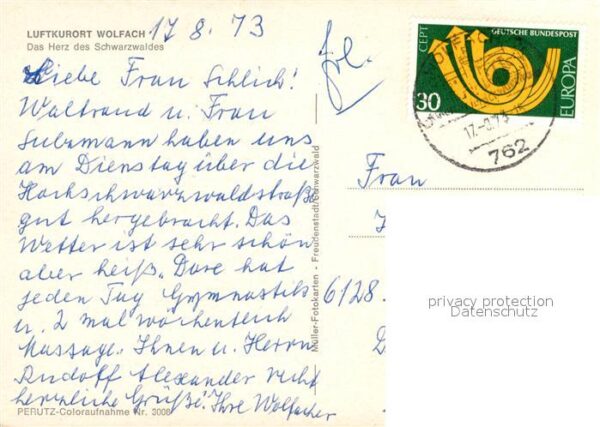 LUFTKURORT WOLFACH 17 8. 73
Das Herz des Schwarzwaldes
Liebe Frau Schlich!
Waltraud u. Frau
Sulzmann haben uns
am Dienstag über die
Hochschwarzwaldstraße
gut hergebracht. Das
Wetter ist sehr schön
aber heiß. Dore hat
jeden Tag Gymnastik
u. 2 mal wöchentlich
Massage. Ihnen u. Herrn
Rudolf Alexander recht
herzliche Grüße! Ihre Wolfacher
PERUTZ-Coloraufnahme Nr. 3008
Müller-Fotokarten - Freudenstadt/Schwarzwald
CEPT
DEUTSCHE BUNDESPOST
EUROPA
30
17.-8.73
762
Frau
6128
privacy protection
Datenschutz